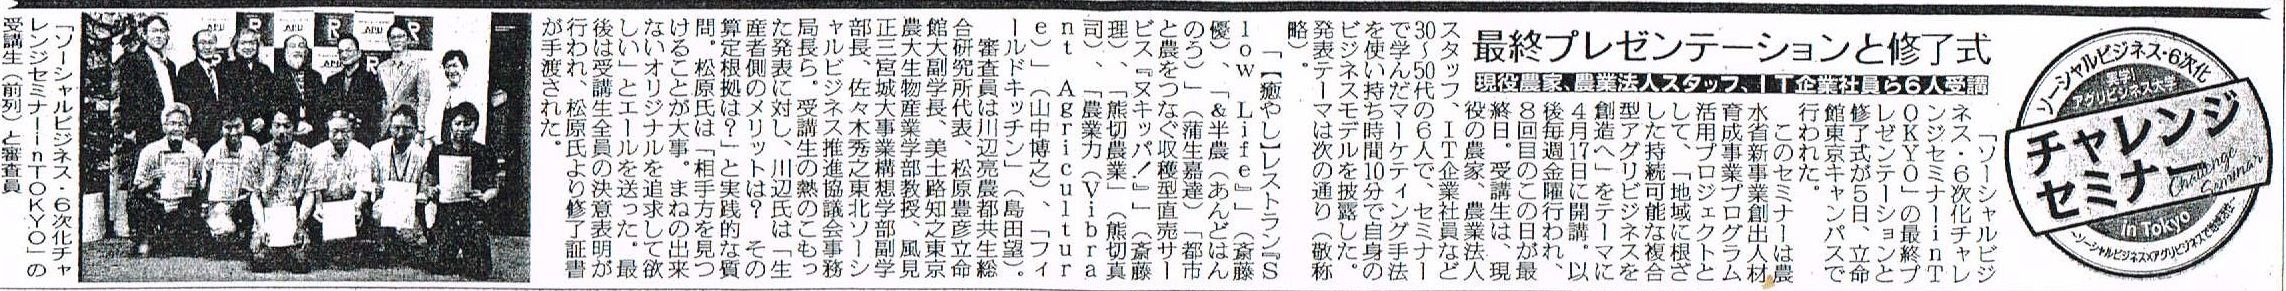 最終プレゼンテーションと修了式
現役農家、農業法人スタッフ、IT企業社員ら6人受講
ソーシャルビジネス・6次化
実学!
アグリビジネス大学
チャレンジ
セミナー
Challenge
Seminar
In Tokyo
〜ソーシャルビジネス×アグリビジネスで地域を〜
「ソーシャルビジ
ネス・6次化チャレ
ンジセミナーinT
OKYO」の最終プ
レゼンテーションと
修了式が5日、立命
館東京キャンパスで
行われた。
このセミナーは農
水省新事業創出人材
育成事業プログラム
活用プロジェクトと
して、「地域に根ざ
した持続可能な複合
型アグリビジネスを
創造へ」をテーマに
4月17日に開講。以
後毎週金曜行われ、
8回目のこの日が最
終日。受講生は、現
役の農家、農業法人
スタッフ、IT企業社員など
30〜50代の6人で、セミナー
で学んだマーケティング手法
を使い持ち時間10分で自身の
ビジネスモデルを披露した。
発表テーマは次の通り(敬称
略)。
「【癒やし】レストラン『S
low Life』」(斎藤
優)、「&半農(あんどはん
のう)」(蒲生嘉達)「都市
と農をつなぐ収穫型直売サー
ビス『ヌキッパ!』」(斎藤
理)、「熊切農業」(熊切真
司)、「農業力(Vibra
nt Agricultur
e)」(山中博之)、「フィ
ールドキッチン」(島田望)。
審査員は川辺亮農都共生総
合研究所代表、松原豊彦立命
館大副学長、美土路知之東京
農大生物産業学部教授、風見
正三宮城大事業構想学部副学
部長、佐々木秀之東北ソーシ
ャルビジネス推進協議会事務
局長ら。受講生の熱のこもっ
た発表に対し、川辺氏は「生
産者側のメリットは? その
算定根拠は?」と実践的な質
問。松原氏は「相手方を見つ
けることが大事。まねの出来
ないオリジナルを追求して欲
しい」とエールを送った。最
後は受講生全員の決意表明が
行われ、松原氏より修了証書
が手渡された。
「ソーシャルビジネス・6次化チャ
レンジセミナーinTOKYO」の
受講生(前列)と審査員